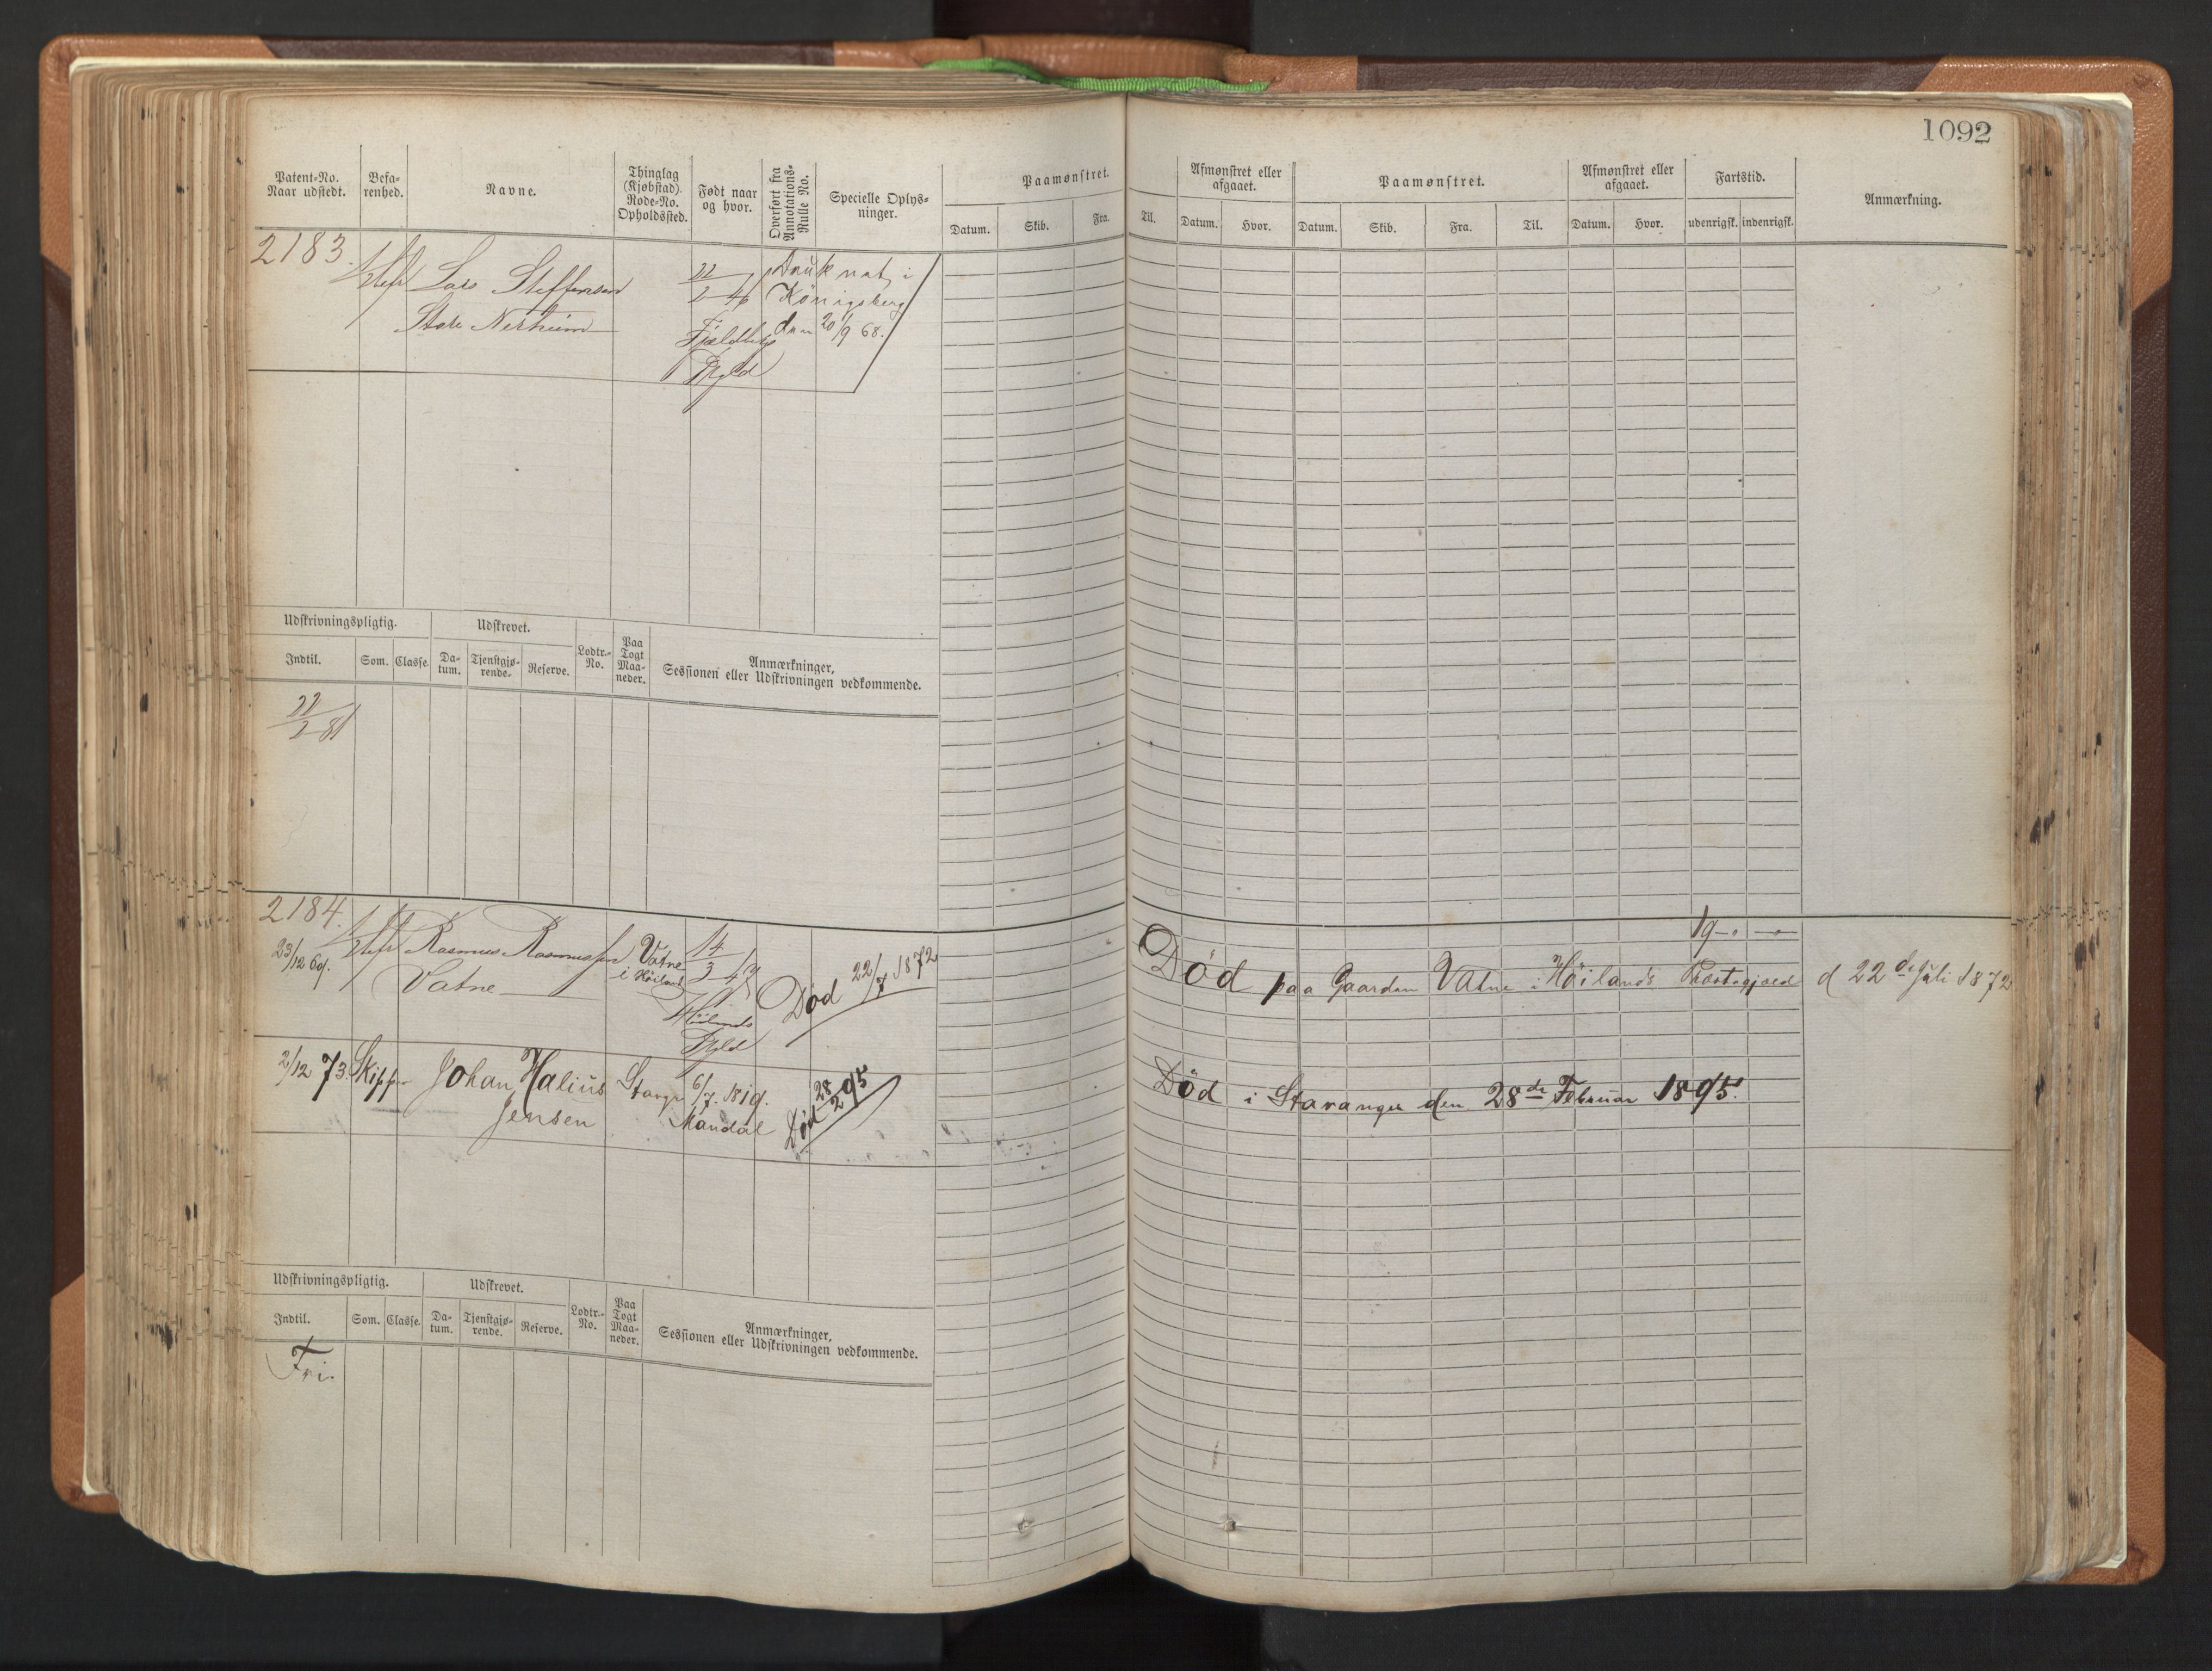 1092
Patent-No. Naar udstedt.
Befarenhed.
Navne.
Thinglag (Kjøbstad). Rode-No. Opholdssted.
Født naar og hvor.
Overført fra Annotations-Rulle No.
Specielle Oplysninger.
Paamønstret.
Datum. Skib. Fra. Til.
Afmønstret eller afgaaet.
Datum. Hvor.
Paamønstret.
Datum. Skib. Fra. Til.
Afmønstret eller afgaaet.
Datum. Hvor.
Fartstid.
udenrigsk. indenrigsk.
Anmærkning.
2183.
Lars Steffensen
Store Nerheim
22/2 46
Fjeldbergs
Pgld
Druknet i
Königsberg
den 20/9 68.
Udskrivningspligtig.
Indtil. Som. Classe.
Udskrevet.
Datum. Tjenstgjørende. Reserve.
Lodtr.-No.
Paa Togt Maaneder.
Anmærkninger,
Sessionen eller Udskrivningen vedkommende.
22/2 81
2184.
23/12 69.
Rasmus Rasmussen
Vatne
Vatne
i Höiland
14/3 47
Höilands
Pgld
Död 22/7 1872
19
Död paa Gaarden Vatne i Höilands Præstegjæld d 22de Juli 1872
2/12 73. Skipp.
Johan Halius
Jensen
Stavgr
6/7. 1819.
Mandal
Död 28/2 95
Död i Stavanger den 28de Februar 1895.
Udskrivningspligtig.
Indtil. Som. Classe.
Udskrevet.
Datum. Tjenstgjørende. Reserve.
Lodtr.-No.
Paa Togt Maaneder.
Anmærkninger,
Sessionen eller Udskrivningen vedkommende.
Fri.